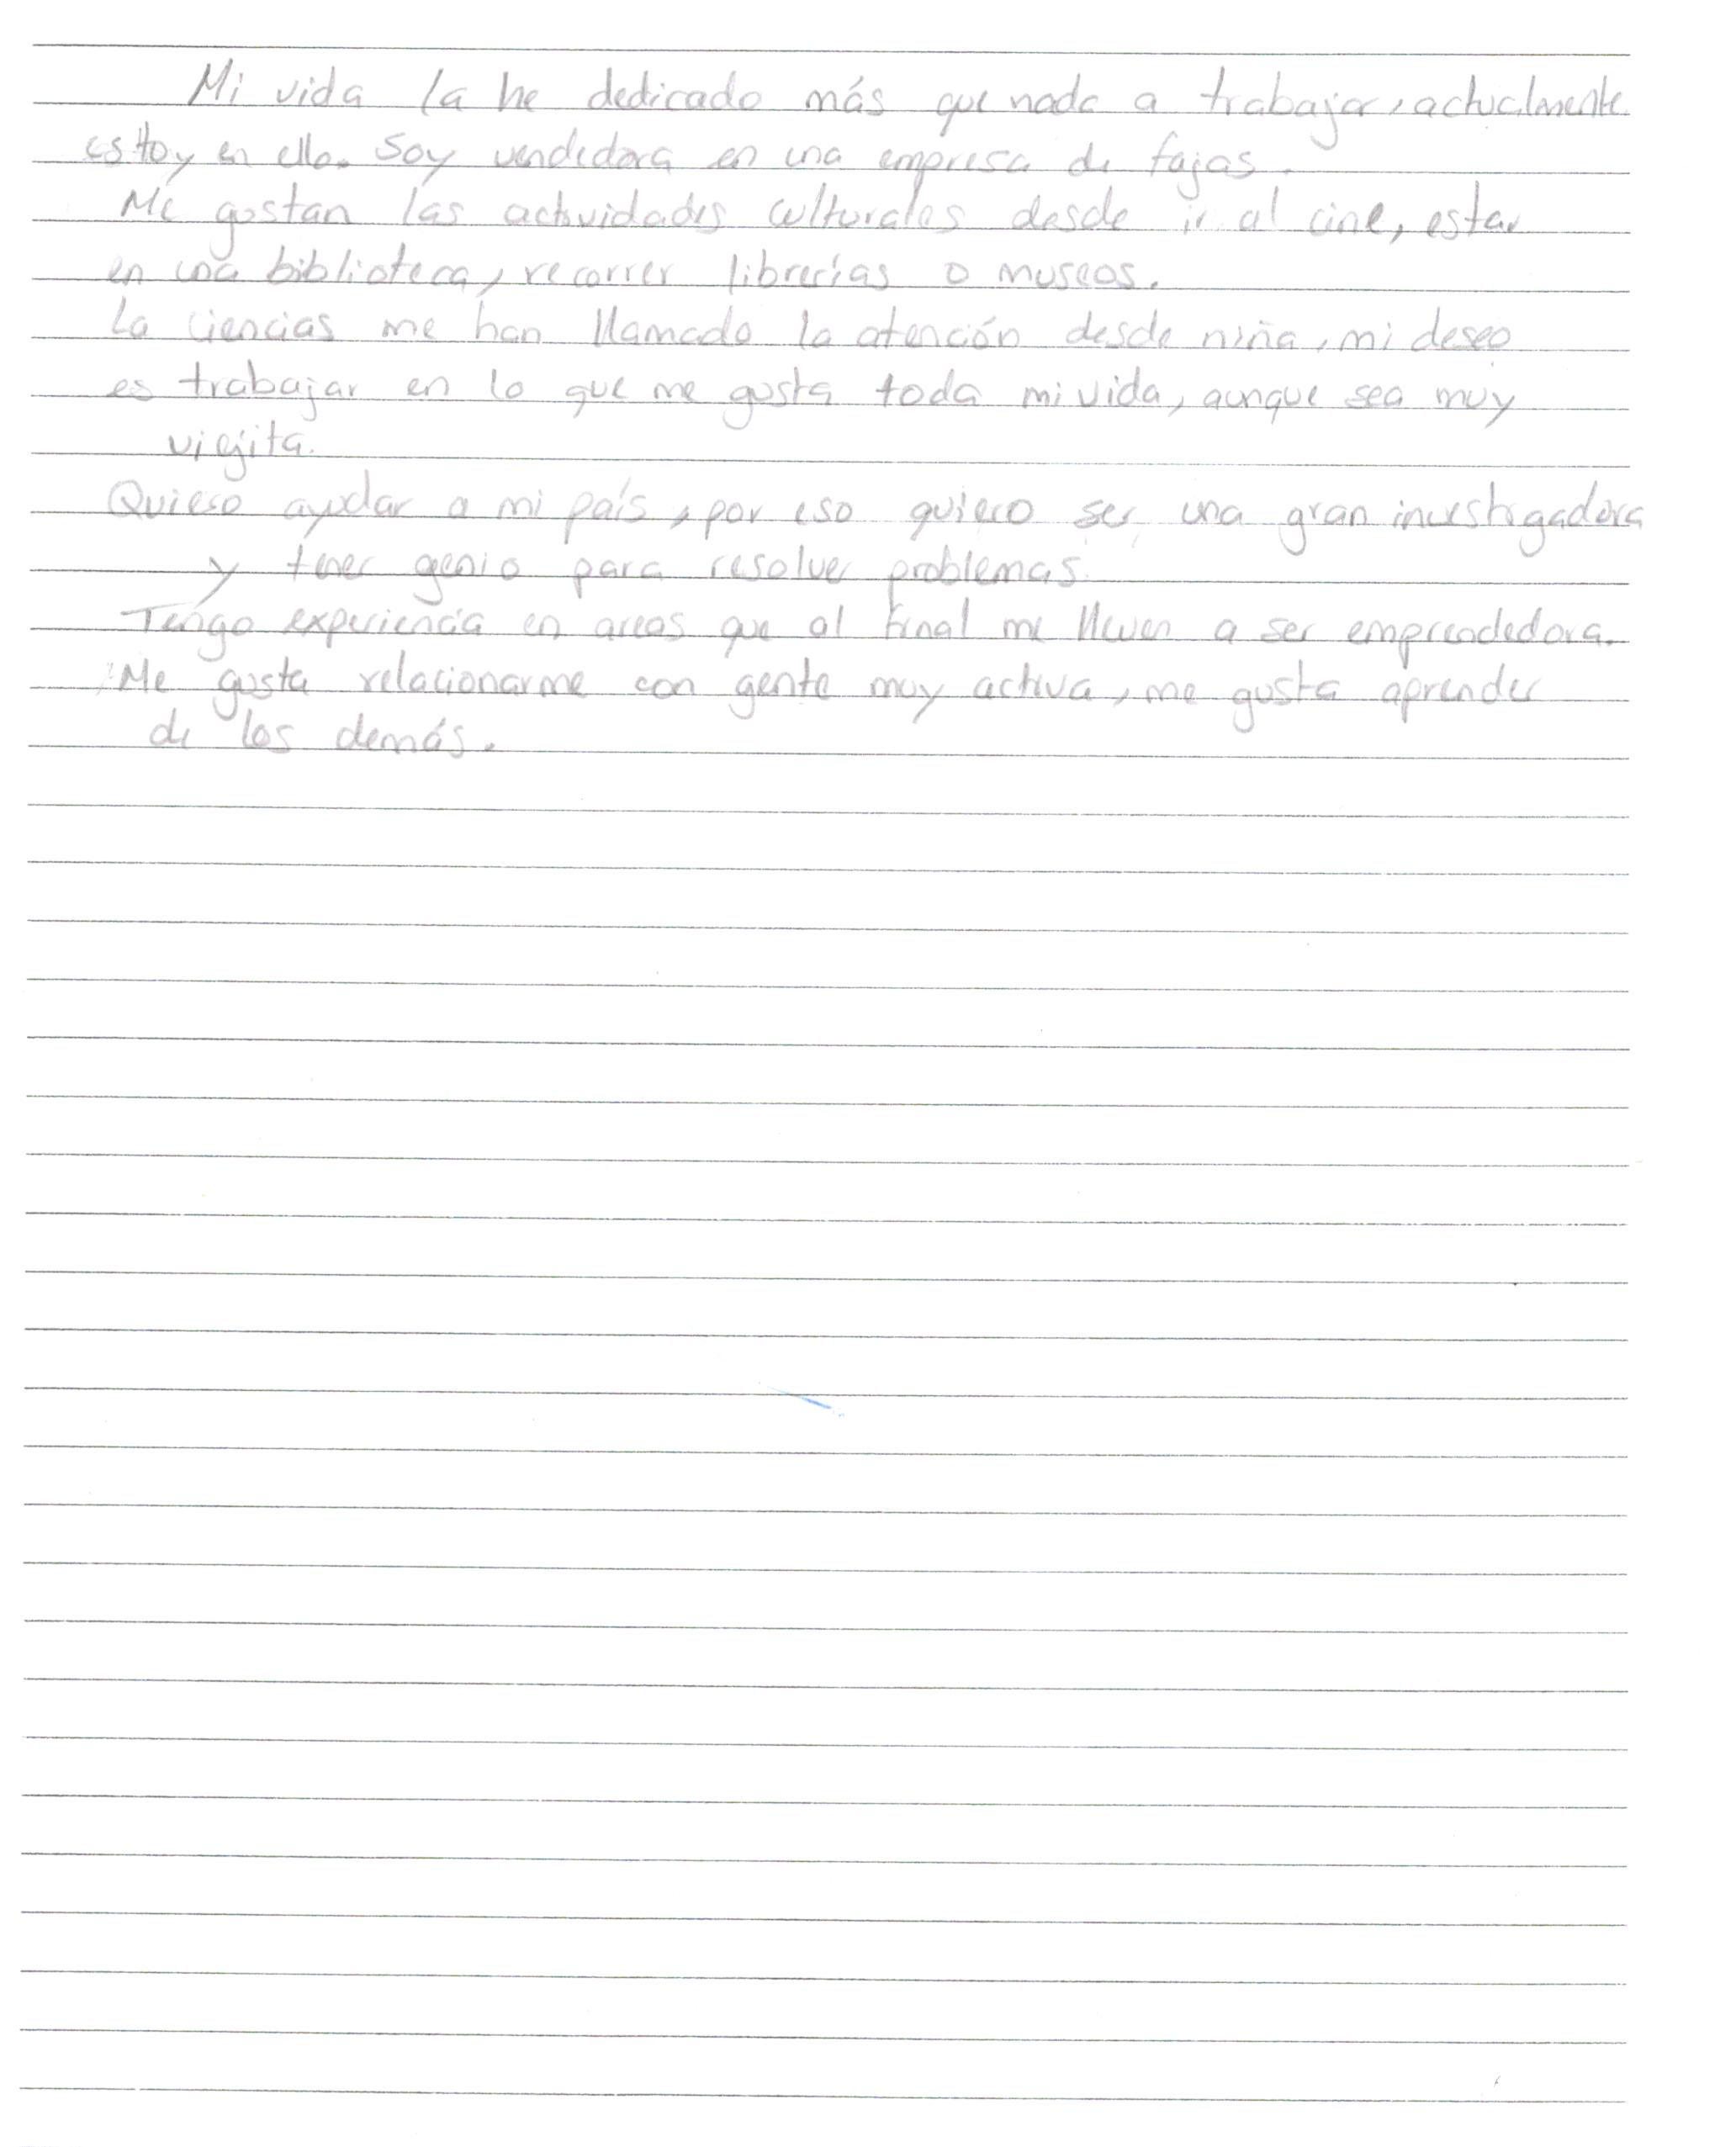 Mi vida la he dedicado más que nada a trabajar, actualmente
estoy en ello. Soy vendedora en una empresa de fajas.
Me gustan las actividades culturales desde ir al cine, estar
en una biblioteca, recorrer librerías o museos.
La ciencias me han llamado la atención desde niña, mi deseo
es trabajar en lo que me gusta toda mi vida, aunque sea muy
viejita.
Quiero ayudar a mi país, por eso quiero ser una gran investigadora
y tener genio para resolver problemas.
Tengo experiencia en areas que al final me lleven a ser emprendedora.
Me gusta relacionarme con gente muy activa, me gusta aprender
de los demás.